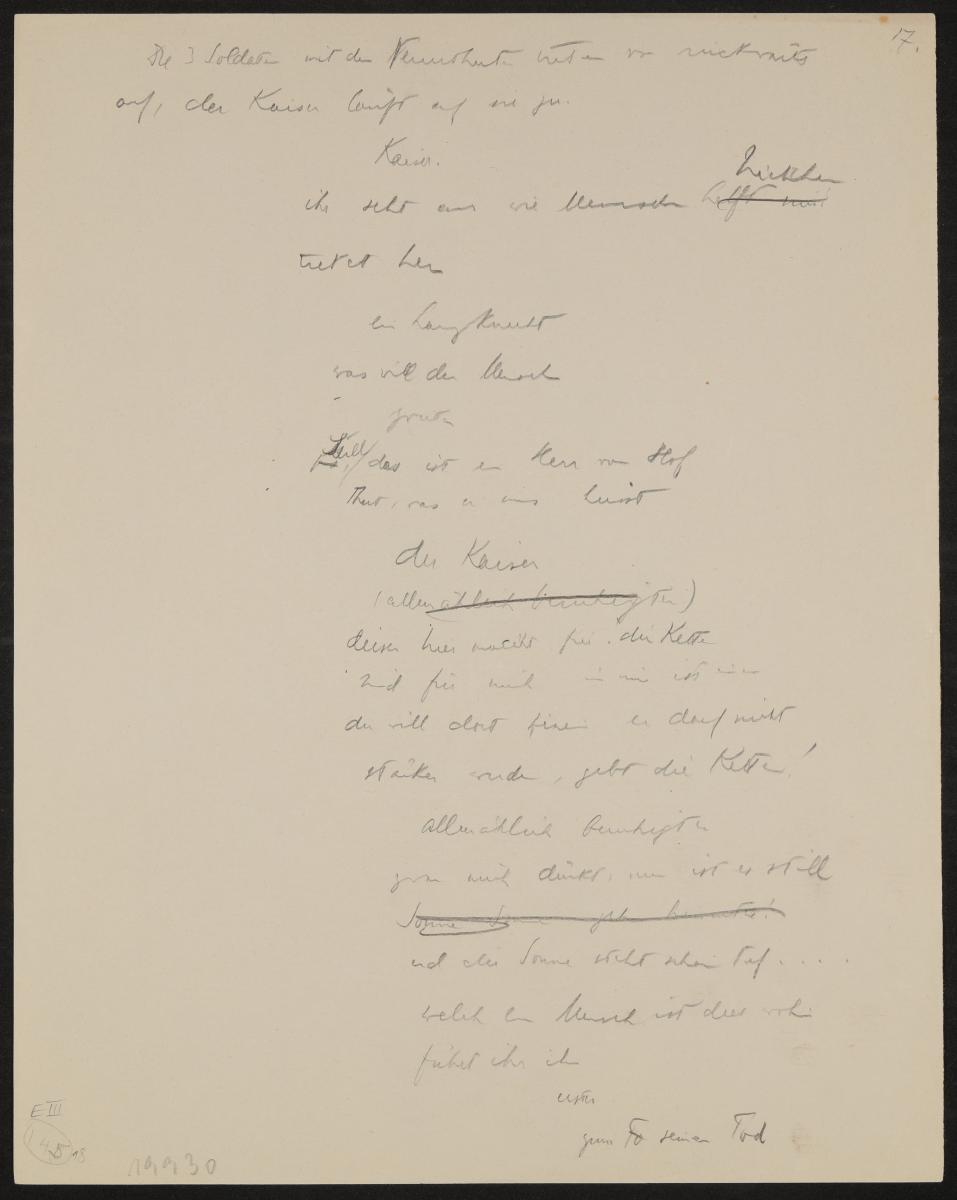 17.
Die 3 Soldaten mit dem Verurtheilten treten von rückwärts
auf, der Kaiser läuft auf sie zu.
Kaiser.
ihr seht aus wie Menschen helft mir
tretet her
ein Lanzknecht
was will der Mensch
zweiter
Still, das ist ein Herr vom Hof
Thut, was er uns heisst
der Kaiser
(allmählich beruhigter)
dieser hier macht frei. die Kette
und für mich in mir ist
der will dort er darf nicht
stärker werden, gebt die Kette!
allmählich beruhigter
zwar mich dünkt, nun ist es still
Sonne Sonne geh herunter!
und die Sonne steht schon tief . . . .
welch ein Mensch ist dies wohin
führet ihr ihn
erster
zum To seinen Tod
E III
145 18
19930